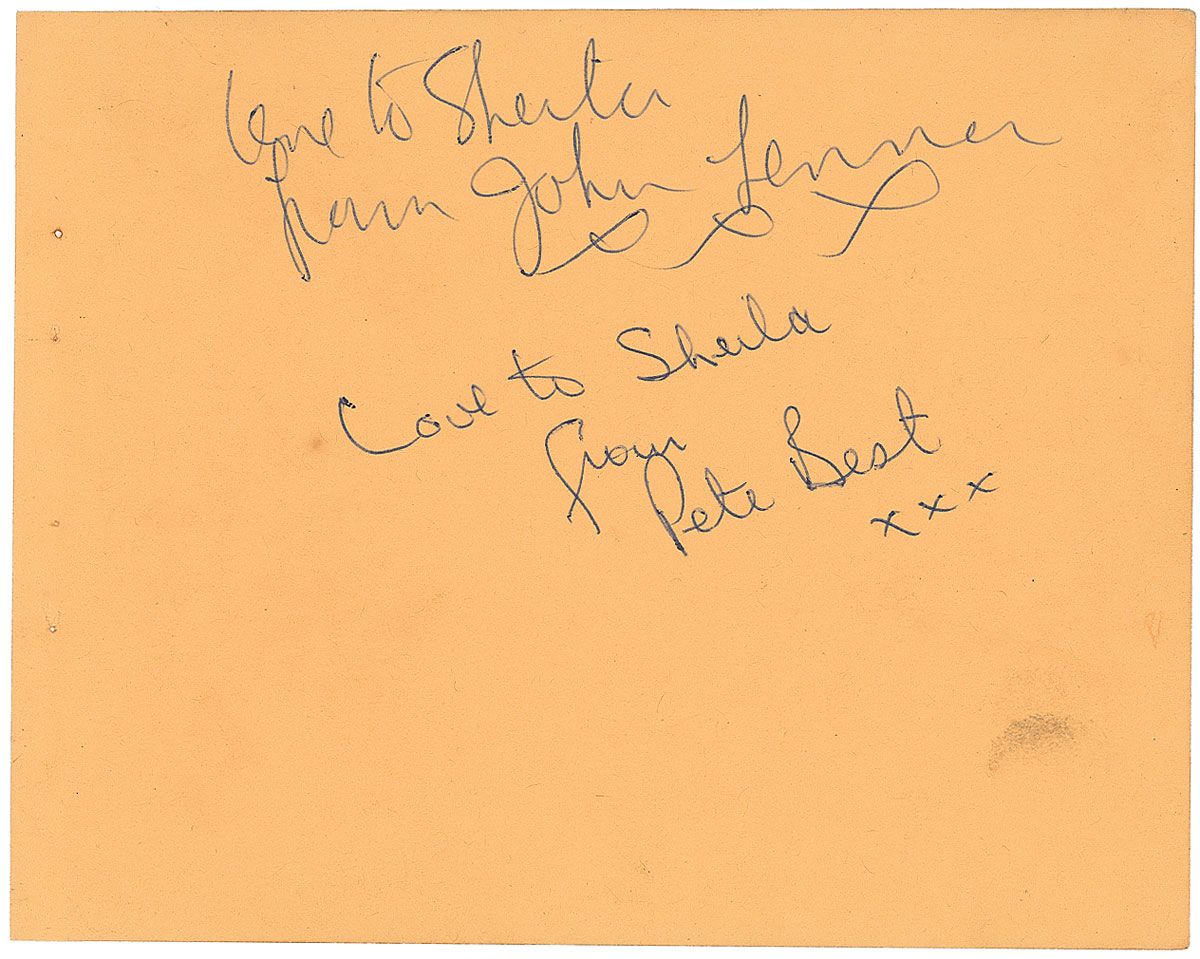 Love to Sheila
from John Lennon
x x x
Love to Sheila
from
Pete Best
xxx